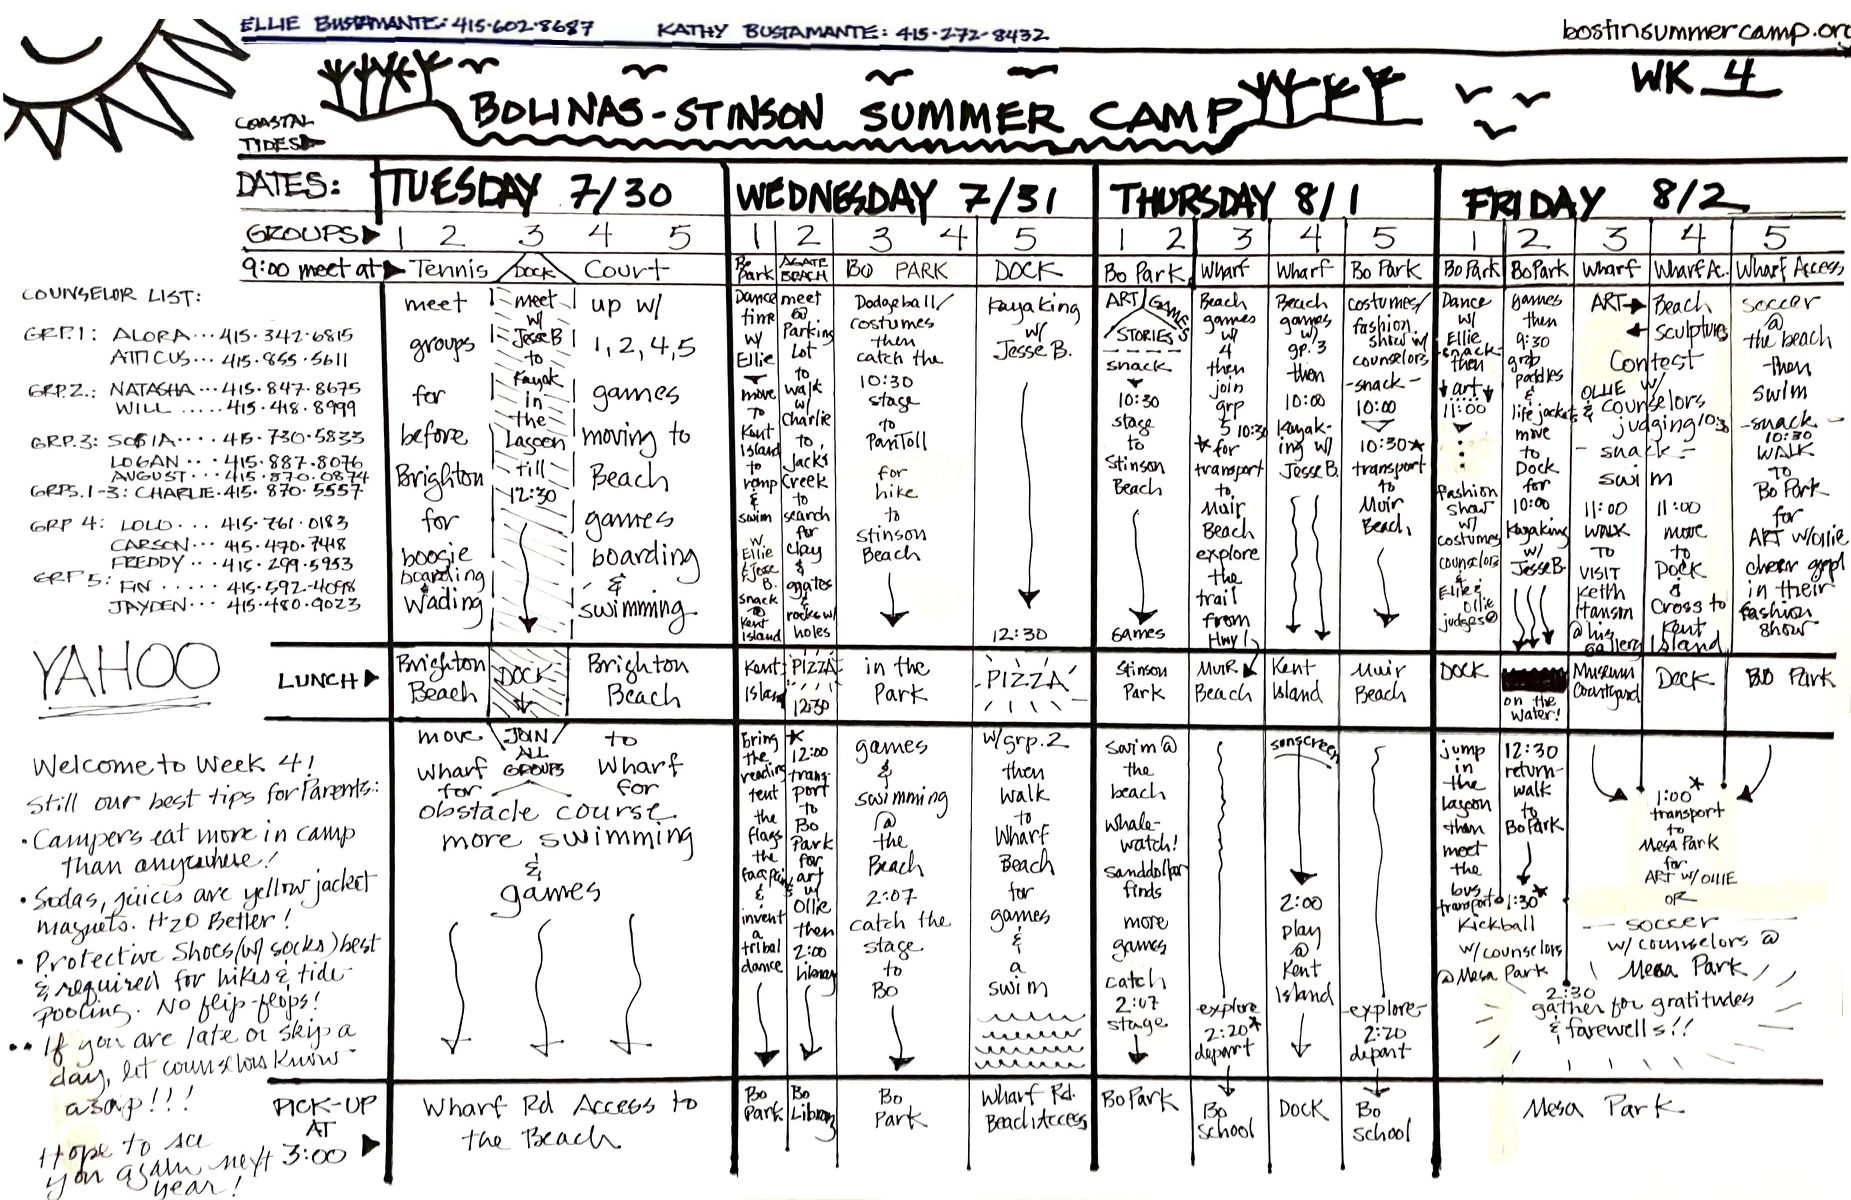 ELLIE BUSTAMANTE: 415·602·8687 KATHY BUSTAMANTE: 415·272·8432
bostinsummercamp.org
WK 4
BOLINAS-STINSON SUMMER CAMP
COASTAL
TIDES
DATES: TUESDAY 7/30 WEDNESDAY 7/31 THURSDAY 8/1 FRIDAY 8/2
GROUPS 1 2 3 4 5 1 2 3 4 5 1 2 3 4 5 1 2 3 4 5
9:00 meet at Tennis DOCK Court Bo Park AGATE BEACH BO PARK DOCK Bo Park Wharf Wharf Bo Park Bo Park Bo Park Wharf Wharf Ac. Wharf Access
COUNSELOR LIST:
GRP.1: ALORA... 415·342·6815
ATTICUS... 415·855·5611
GRP.2: NATASHA... 415·847·8675
WILL ..... 415·418·8999
GRP.3: SOFIA.... 415·730·5833
LOGAN ... 415·887·8076
AUGUST... 415·870·0874
GRPS.1-3: CHARLIE. 415·870·5557
GRP 4: LOLO... 415·761·0183
CARSON... 415·470·7418
FREDDY... 415·299·5953
GRP 5: FIN ..... 415·592·4098
JAYDEN... 415·480·9023
YAHOO
Welcome to Week 4!
Still our best tips for Parents:
· Campers eat more in camp
than anywhere!
· Sodas, juices are yellow jacket
magnets. H2O Better!
· Protective Shoes (w/ socks) best
& required for hikes & tide
pooling. No flip-flops!
·· If you are late or skip a
day, let counselors know
asap!!!
Hope to see
you again next
year!
meet
groups
for
before
Brighton
for
boogie
boarding
wading
meet
w/
Jesse B
to
Kayak
in
the
Lagoon
till
12:30
up w/
1, 2, 4, 5
games
moving to
Beach
games
boarding
&
swimming
Dance
time
w/
Ellie
move
to
Kent
Island
to
romp
&
swim
w.
Ellie
& Jesse
B.
snack
@
Kent
Island
meet
@
Parking
Lot
to
walk
w/
Charlie
to
Jacks
Creek
to
search
for
clay
&
agates
&
rocks w/
holes
Dodgeball/
costumes
then
catch the
10:30
stage
to
PanToll
for
hike
to
Stinson
Beach
Kayaking
w/
Jesse B.
12:30
ART/GAMES
STORIES
snack
10:30
stage
to
Stinson
Beach
Games
Beach
games
w/
4
then
join
grp
5 10:30
* for
transport
to
Muir
Beach
explore
the
trail
from
Hwy 1
Beach
games
w/
gp. 3
then
10:00
Kayak-
ing w/
Jesse B.
costumes/
fashion
show w/
counselors
-snack-
10:00
10:30*
transport
to
Muir
Beach
Dance
w/
Ellie
-snack-
then
art
11:00
fashion
show
w/
costumes
counselors
&
Ellie &
Ollie
judges@
games
then
9:30
grab
paddles
&
life jackets
move
to
Dock
for
10:00
Kayaking
w/
Jesse B.
ART Beach
Sculptures
Contest
w/
OLLIE
& counselors
judging 10:30
- snack -
swim
11:00
WALK
TO
VISIT
Keith
Hanson
@ his
gallery
11:00
move
to
DOCK
&
Cross to
Kent
Island
soccer
@
the beach
then
swim
-snack-
10:30
WALK
to
Bo Park
for
ART w/ollie
cheer grp1
in their
fashion
show
LUNCH
Brighton
Beach
DOCK
Brighton
Beach
Kent
Island
PIZZA
12:30
in the
Park
PIZZA
Stinson
Park
Muir
Beach
Kent
Island
Muir
Beach
DOCK
on the
water!
Museum
Courtyard
Dock
BO Park
move
wharf
for
JOIN
ALL
GROUPS
to
wharf
for
obstacle course
more swimming
&
games
bring
the
reading
tent
the
flags
the
facepaint
&
invent
a
tribal
dance
*
12:00
trans-
port
to
Bo
Park
for
art
w/
Ollie
then
2:00
Library
games
&
swimming
@
the
Beach
2:07
catch the
stage
to
Bo
w/grp. 2
then
walk
to
Wharf
Beach
for
games
&
a
swim
swim @
the
beach
whale-
watch!
sanddollar
finds
more
games
catch
2:07
stage
explore
2:20*
depart
sunscreen
2:00
play
@
Kent
Island
-explore-
2:20
depart
jump
in
the
lagoon
then
meet
the
bus
transport
Kickball
w/counselors
@ Mesa Park
12:30
return-
walk
to
Bo Park
1:30*
1:00*
transport
to
Mesa Park
for
ART w/ OLLIE
OR
soccer
w/ counselors @
Mesa Park
2:30
gather for gratitudes
& farewells!!
PICK-UP
AT
3:00
Wharf Rd Access to
the Beach
Bo
Park
Bo
Library
Bo
Park
Wharf Rd.
Beach Access
Bo Park
Bo
School
DOCK
Bo
School
Mesa Park